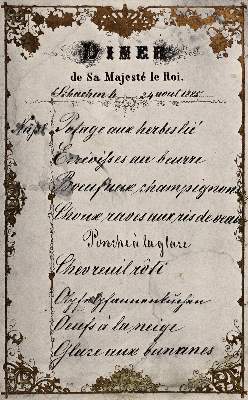 DINER
de Sa Majesté le Roi.
Schachen le 24 août 1885
Potage aux herbes lié
Ecrivisses au beurre
Boeuf aux champignons
Choux raves aux ris de veau
Ponche à la glace
Chevreuil rôti
Apfelpfannenkuchen
Oeufs à la neige
Glace aux bananes